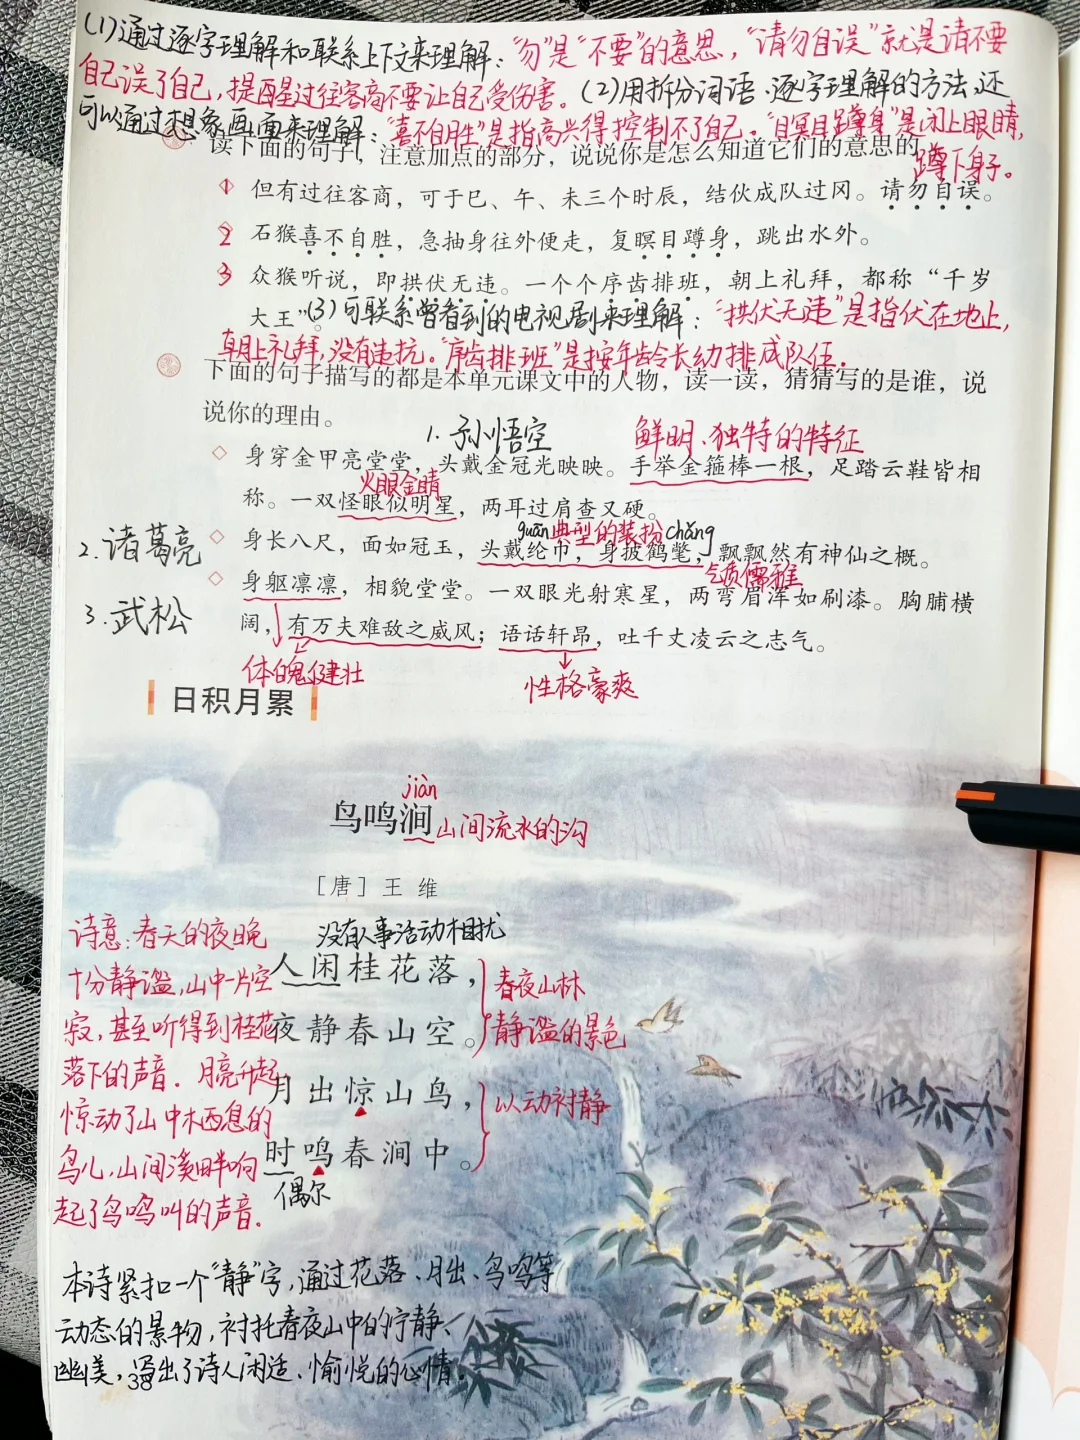 (1)通过逐字理解和联系上下文来理解：“勿”是“不要”的意思，“请勿自误”就是请不要
自己误了自己，提醒过往客商不要让自己受伤害。(2)用拆分词语、逐字理解的方法，还
可以通过想象画面来理解：“喜不自胜”是指高兴得控制不了自己。“瞑目蹲身”是闭上眼睛，
蹲下身子。
读下面的句子，注意加点的部分，说说你是怎么知道它们的意思的。
1 但有过往客商，可于巳、午、未三个时辰，结伙成队过冈。请勿自误。
2 石猴喜不自胜，急抽身往外便走，复瞑目蹲身，跳出水外。
3 众猴听说，即拱伏无违。一个个序齿排班，朝上礼拜，都称“千岁
大王”。
(3)可联系曾看到的电视剧来理解：“拱伏无违”是指伏在地上，
朝上礼拜，没有违抗。“序齿排班”是按年龄长幼排成队伍。
下面的句子描写的都是本单元课文中的人物，读一读，猜猜写的是谁，说
说你的理由。
1.孙悟空
鲜明、独特的特征
身穿金甲亮堂堂，头戴金冠光映映。手举金箍棒一根，足踏云鞋皆相
火眼金睛
称。一双怪眼似明星，两耳过肩查又硬。
guān 典型的装扮 chǎng
2.诸葛亮
身长八尺，面如冠玉，头戴纶巾，身披鹤氅，飘飘然有神仙之概。
气质儒雅
3.武松
身躯凛凛，相貌堂堂。一双眼光射寒星，两弯眉浑如刷漆。胸脯横
阔，有万夫难敌之威风；语话轩昂，吐千丈凌云之志气。
体魄健壮
性格豪爽
日积月累
jiàn
鸟鸣涧 山间流水的沟
［唐］王维
没有人事活动相扰
人闲桂花落，
夜静春山空。
春夜山林
静谧的景色
月出惊山鸟，
时鸣春涧中。
以动衬静
偶尔
诗意：春天的夜晚
十分静谧，山中一片空
寂，甚至听得到桂花
落下的声音。月亮升起，
惊动了山中栖息的
鸟儿，山间溪畔响
起了鸟鸣叫的声音。
本诗紧扣一个“静”字，通过花落、月出、鸟鸣等
动态的景物，衬托春夜山中的宁静、
幽美，写出了诗人闲适、愉悦的心情。
38